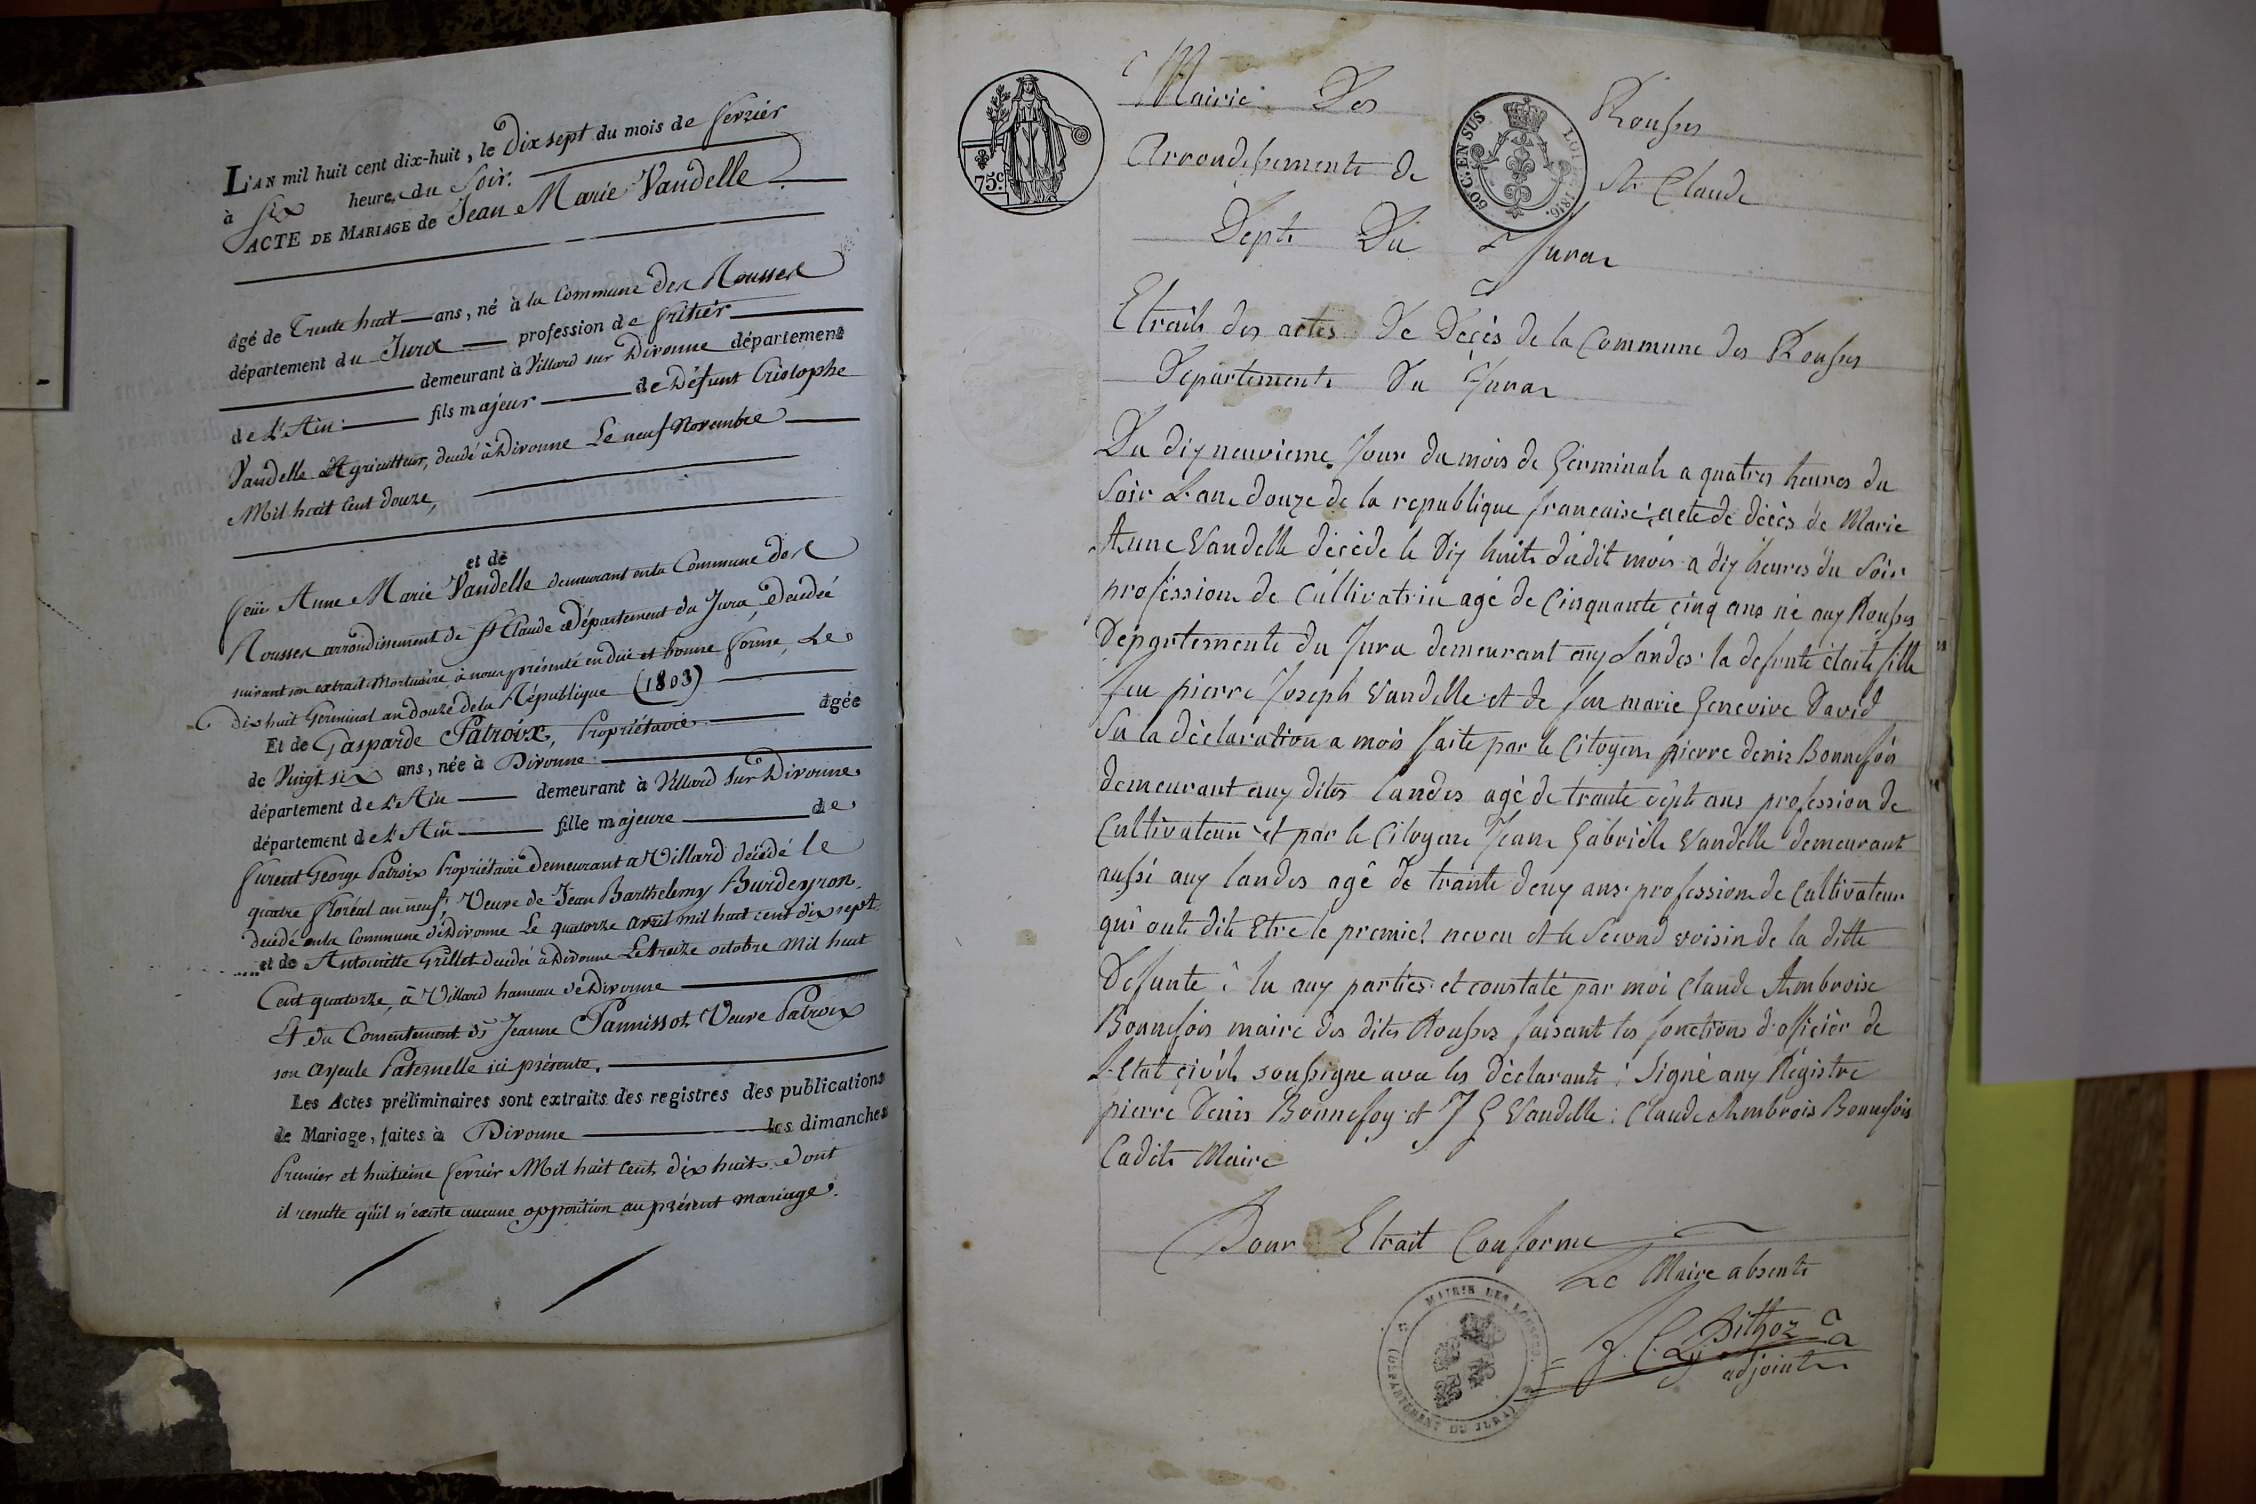 L'AN mil huit cent dix-huit, le Dix sept du mois de fevrier
à six heures du Soir.
ACTE DE MARIAGE de Jean Marie Vandelle
âgé de Trente huit ans, né à la Commune des Rousses
département du Jura profession de fritier
demeurant à Villard sur Divonne département
de L'Ain fils majeur de Défunt Cristophe
Vandelle Agriculteur, decedé à Divonne Le neuf Novembre
Mil huit Cent douze,
et de
feüe Anne Marie Vandelle demeurant en la Commune des
Rousses arrondissement de St Claude Département du Jura, Decedée
suivant son extrait Mortuaire à nous présenté en due et bonne forme, Le
Dix huit Germinal an douze de la République (1803)
Et de Gasparde Patroix, Propriétaire âgée
de Vuigt six ans, née à Divonne
département de L'Ain demeurant à Villard sur Divonne
département de L'Ain fille majeure de
furent George Patroix Propriétaire demeurant a Villard décédé le
quatre floréal an neuf, Veuve de Jean Barthelemy Burdeyron
decedé en la Commune de Divonne Le quatorze avril mil huit cent dix sept
et de Antoinette Grillet decedée à Divonne Le treize octobre Mil huit
Cent quatorze, à Villard hameau de Divonne
Et du Consentement de Jeanne Pannissot Veuve Patroix
son Ayeule Paternelle ici présente.
Les Actes préliminaires sont extraits des registres des publications
de Mariage, faites à Divonne les dimanches
Premier et huitieme fevrier Mil huit Cent dix huit dont
il resulte qu'il n'existe aucune opposition au présent mariage.
75c
50 C. EN SUS LOI 1816.
Mairie Des Rousses
Arrondissement de St Claude
Dept Du Jura
Etrait des actes De Décès de la Commune des Rousses
Departement Du Jura
Du dix neuvieme Jour du mois de Germinal a quatres heures du
Soir L'an douze de la republique francaise acte de décès de Marie
Anne Vandelle décède le Dix huit dudit mois a dix heures du Soir
profession de Cultivatrice agé de Cinquante cinq ans né aux Rousses
Departement du Jura demeurant aux Landes la defunte était fille
feu pierre Joseph Vandelle et de feu marie Genevive David
Su la déclaration a mois faite par le Citoyen pierre denis Bonnefois
demeurant aux dites landes agé de trante sept ans profession de
Cultivateur et par le Citoyen Jean Gabrielle Vandelle demeurant
aussi aux landes agé de trante deux ans profession de Cultivateur
qui ont dit Etre le premier neveu et le Second voisin de la ditte
Defunte lu aux parties et constaté par moi Claude Ambroise
Bonnefois maire des dites Rousses faisant les fonctions d'officièr de
L'Etat civil soussigne avec les déclarants : Signé aux Régistre
pierre Denis Bonnefoy et J G Vandelle : Claude Ambrois Bonnefois
Cadit Maire
Pour Etrait Conforme
Le Maire absent
adjoint
MAIRIE LES ROUSSES
(DÉPARTEMENT DU JURA)